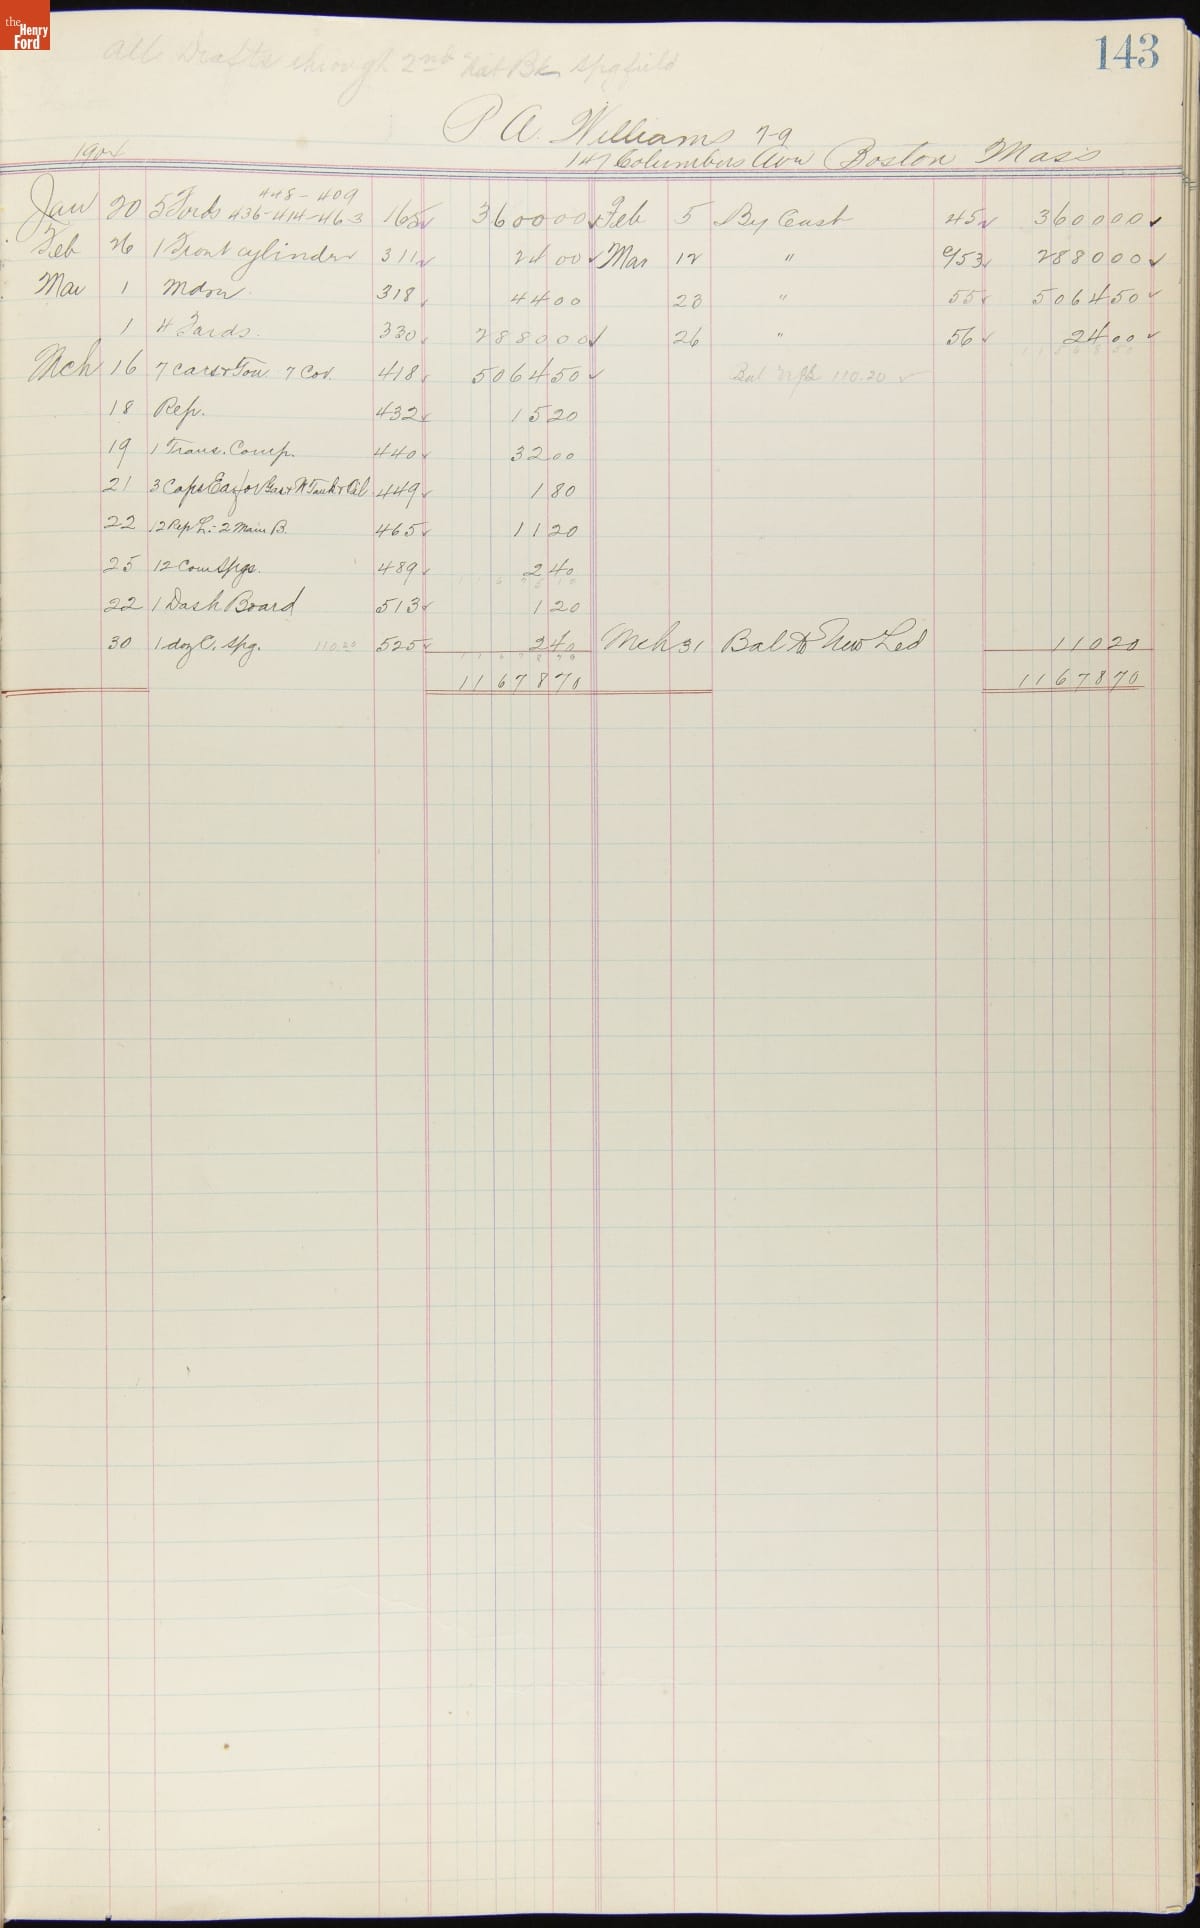 the Henry Ford
143
All Drafts through 2nd Nat Bk Spgfield
P A. Williams 7-9
1904 147 Columbus Ave Boston Mass
448-409
Jan 20 5 Fords 436-414-463 165 3600 00 Feb 5 By Cash 45 3600 00
Feb 26 1 Front cylinder 311 24 00 Mar 12 " 953 2880 00
Mar 1 Mdse 318 44 00 23 " 55 5064 50
1 4 Fords. 330 2880 00 26 " 56 24 00
Mch 16 7 Cars & Ton. 7 Cov. 418 5064 50 Bal 110.20
18 Rep. 432 15 20
19 1 Trans. Comp. 440 32 00
21 3 Caps Ea for Gas & W Tank & Oil 449 1 80
22 12 Rep L:- 2 Main B. 465 11 20
25 12 Com Spgs. 489 2 40
22 1 Dash Board 513 1 20
30 1 doz C. Spg. 110.20 525 2 40 Mch 31 Bal to New Led 110 20
11678 70 11678 70